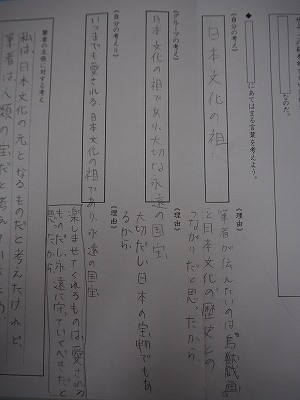 なのだ。
◆
にあてはまる言葉を考えよう。
(自分の考え)
日本文化の祖!
(理由)
筆者が伝えたいのは"鳥獣戯画"
と日本文化の歴史との
つながりだと思ったから。
(グループの考え)
日本文化の祖であり、大切な永遠の国宝
(理由)
大切だし、日本の宝物でもあ
るから。
(自分の考えⅡ)
いつまでも愛される、日本文化の祖であり、永遠の国宝
(理由)
楽しませてくれるものは、愛される
ものだし、永遠に守っていくべきだと
思ったから。
筆者の主張に対する考え
私は、日本文化の元となるものだと考えたけれど、
筆者は、人類の宝だと考えて